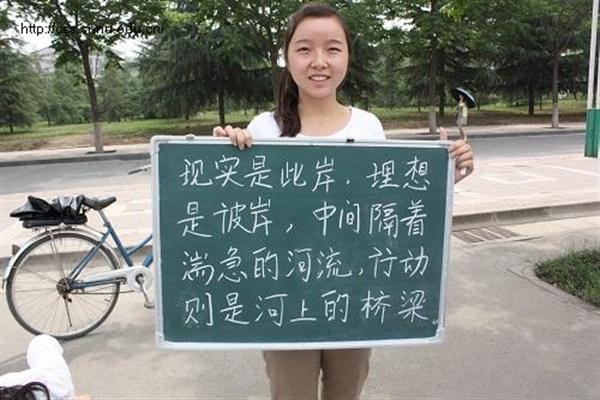 现实是此岸,理想
是彼岸,中间隔着
湍急的河流,行动
则是河上的桥梁。